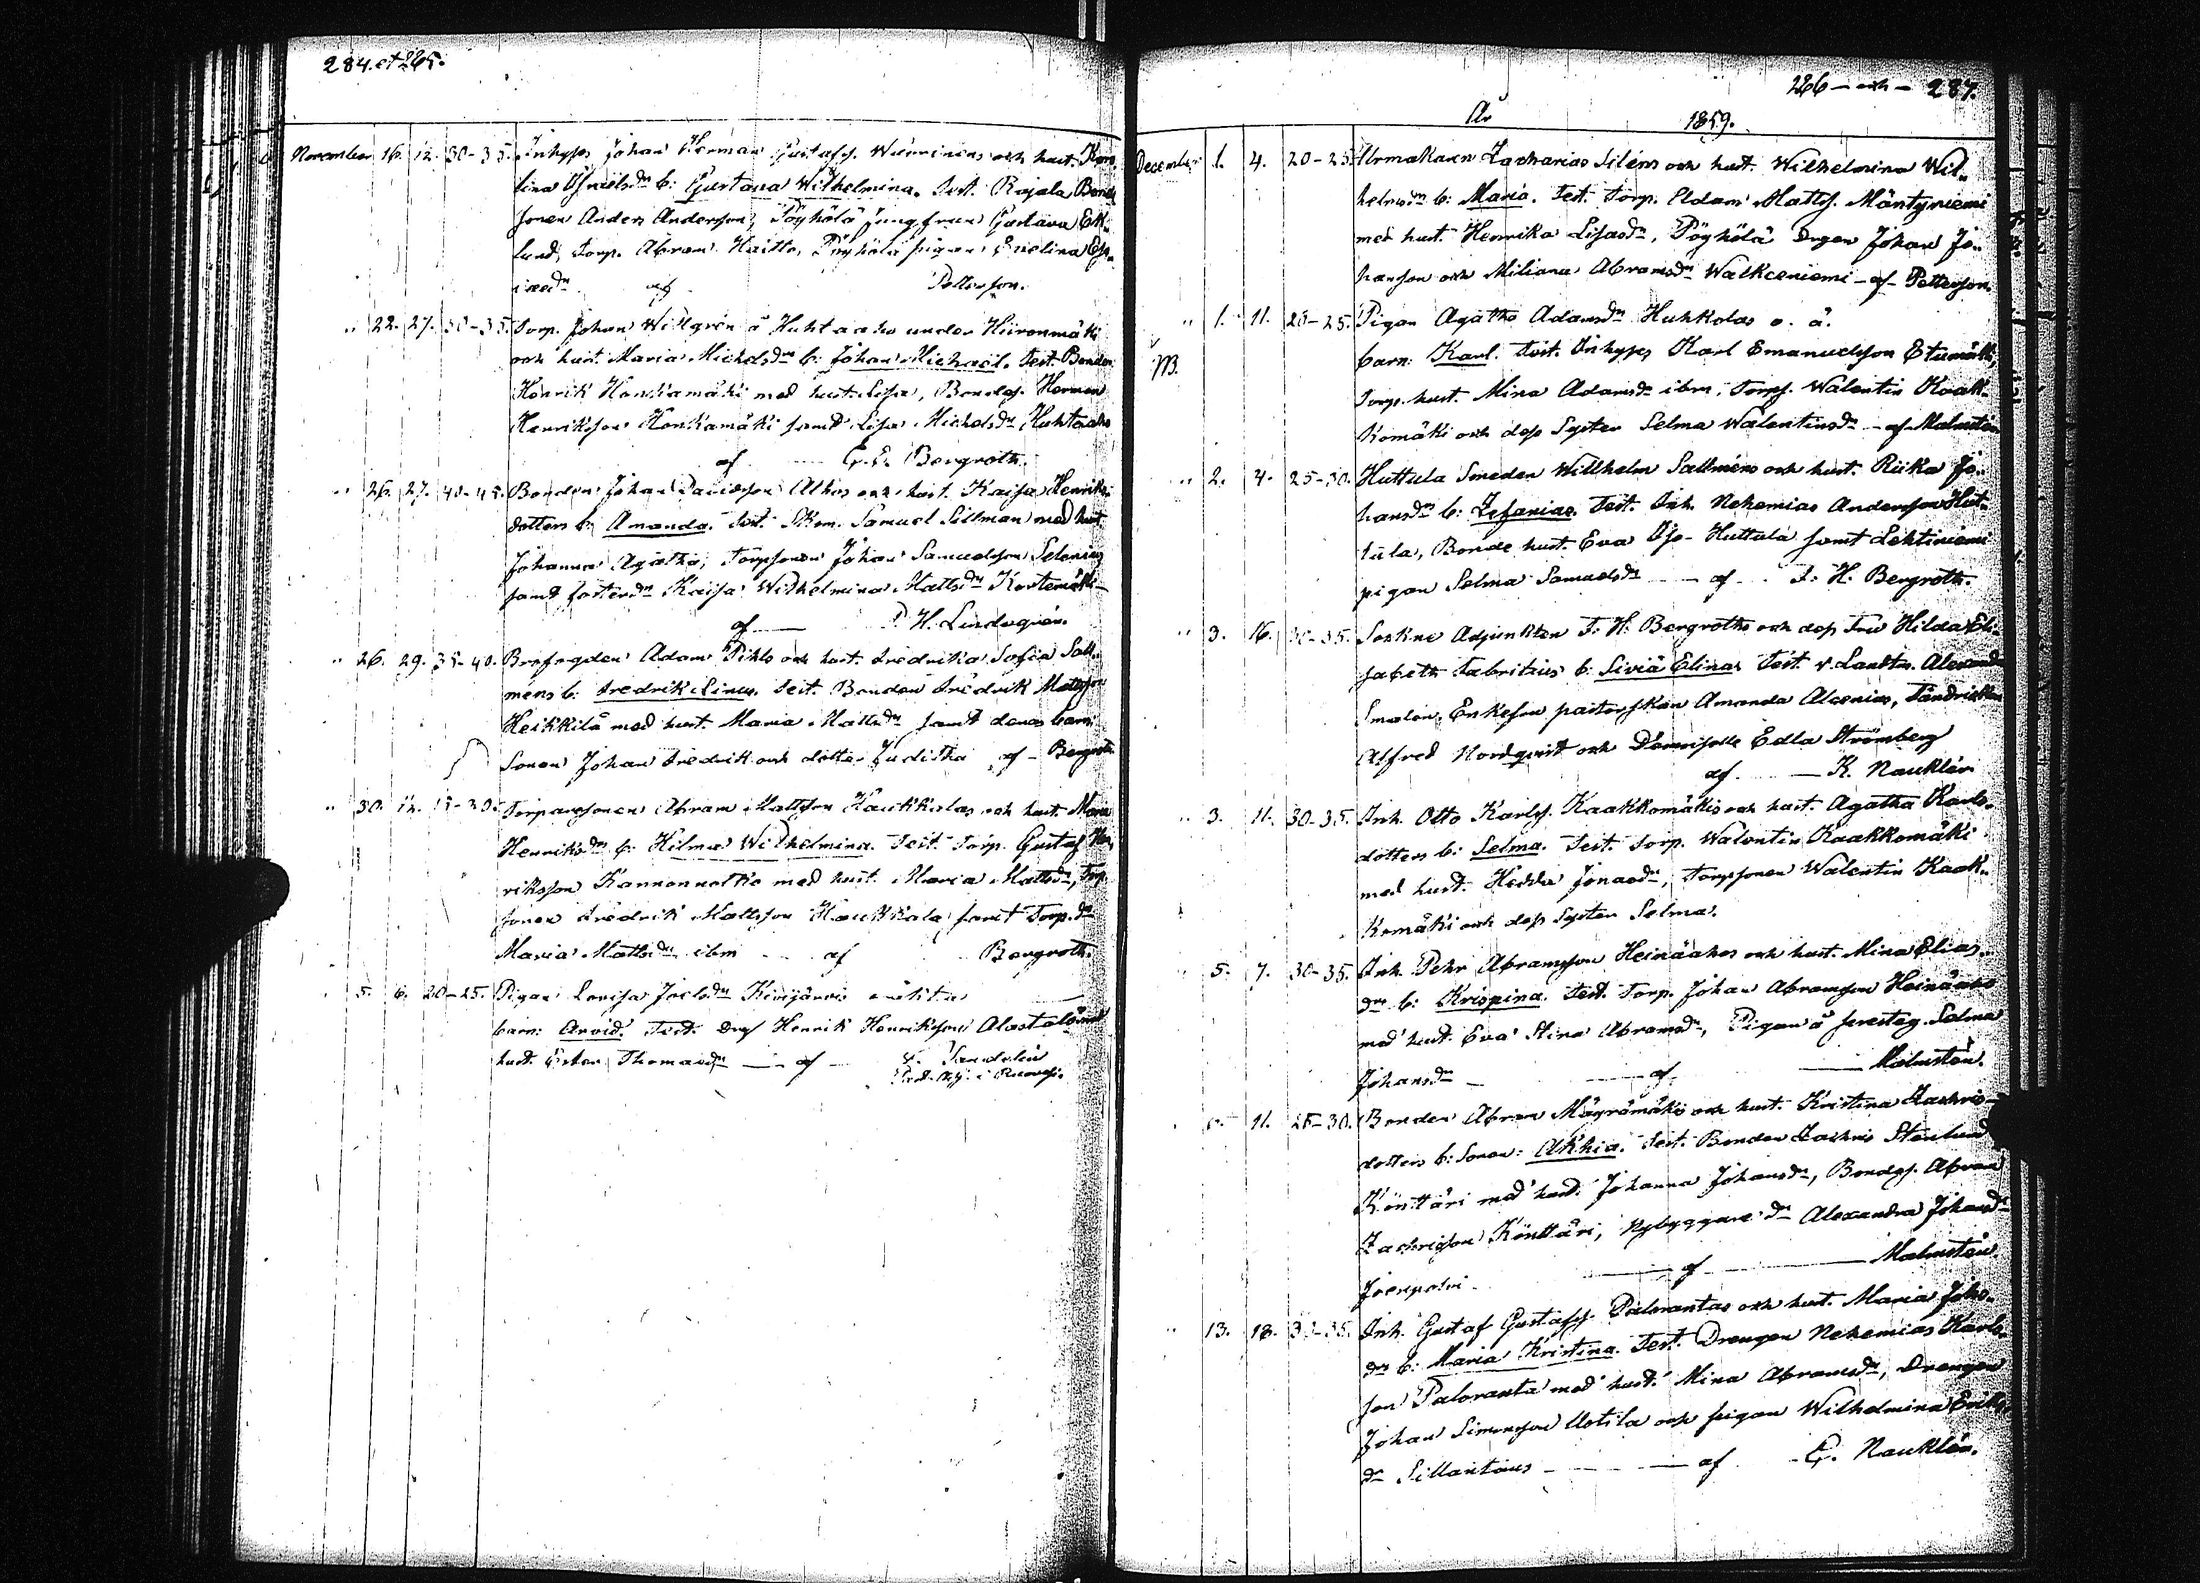 284. et 285.
November 16. 12. 30-35. Inhyses Johan Herman Gustafss. Wuorinens och hust. Karo-
lina Israelsdrs b: Gustava Wilhelmina. Test. Rajala Bonde
sonen Anders Andersson, Pöyhölä jungfrun Gustava Ek-
lund, Torp. Abram Haitto, Pöyhölä pigan Evelina
af Pettersson.
" 22. 27. 30-35. Torp. Johan Willgren å Huhtaaho under Hiironmäki
och hust. Maria Michelsdrs b: Johan Michael. Test. Bonden
Henrik Honkamäki med hust. Lisa, Bondes. Herman
Henriksson Honkamäki samt Lisa Michelsdr Huhtaaho
af G. E. Bergroth.
" 26. 27. 40-45. Bonden Johan Davidsson Alhos och hust. Kaisa Henriks
dotters b: Amanda. Test. Skom. Samuel Sillman med hust.
Johanna Agatha, Torpsonen Johan Samuelsson Selenius
samt fosterdr Kaisa Wilhelmina Mattsdr
af H. Lindeqvist.
" 26. 29. 35-40. Adam Pihls och hust. Fredrika Sofia Sall-
mens b: Fredrik Linus. Test. Bonden Fredrik Mattsson
Heikkilä med hust. Maria Mattsdr samt deras barn:
Sonen Johan Fredrik och dotter Juditha af Bergroth
" 30. 12. Torparesonen Abram Mattsson Haukkalas och hust. Maria
Henriksdrs b: Hilma Wilhelmina. Test. Torp. Gustaf Hen-
riksson med hust. Maria Mattsdr, Torp-
sonen Fredrik Mattsson Haukkala samt Torp.dr
Maria Mattsdr ibm af Bergroth.
5. 6. 20-25. Pigan Lovisa Joelsdr Kivijärvis oäkta
barn: Arvid. Test. Drg Henrik Henriksson Alastalo med
hust. Ester Thomasdr af Sandelin
286 - och - 287.
År 1859.
December 1. 4. 20-25. Urmakaren Zacharias Siléns och hust. Wilhelmina Wil-
helmsdrs b: Maria. Test. Torp. Adam Mattss. Mäntyniemi
med hust. Henrika Lisasdr, Pöyhölä Drgen Johan Jo-
hansson och Miliana Abramsdr Walkeeniemi - af - Pettersson.
" 1. 11. 20-25. Pigan Agatha Adamsdr Huhkolas o. ä.
barn: Karl. Test. Inhyses Karl Emanuelsson Etumäki,
Torp. hust. Mina Adamsdr ibm, Torps. Walentin Kaak-
komäki och dess Syster Selma Walentinsdr - af Malmstén
" 2. 4. 25-30. Huttula Smeden Willhelm Sallméns och hust. Riika Jo-
hansdrs b: Zefanias. Test. Inh. Nehemias Andersson Hut-
tula, Bonde hust. Eva Huttula samt Lehtiniemi
pigan Selma Samuelsdr - af - F. H. Bergroth.
" 3. 16. 30-35. Sockne Adjunkten F. H. Bergroths och dess Fru Hilda Eli-
sabeth Fabritius b: Siviä Elina. Test. v. Landtm. Alexander
Smalén, Enkefru pastorskan Amanda Alcenius,
Alfred Nordqvist och Demoiselle Edla Strömberg
af - K. Nauklér
" 3. 11. 30-35. Inh. Otto Karlss. Kaakkomäkis och hust. Agatha Karls-
dotters b: Selma. Test. Torp. Walentin Kaakkomäki
med hust. Hedda Jonasdr, Torpsonen Walentin Kaak-
komäki och dess Syster Selma.
5. 7. 30-35. Inh. Pehr Abramsson Heinäahos och hust. Mina Elias-
drs b: Krispina. Test. Torp. Johan Abramsson Heinäaho
med hust. Eva Stina Abramsdr, Pigan å Selma
Johansdr - af - Malmstén.
11. 25-30. Bonden Abram Mäyrämäkis och hust. Kristina Zachris-
dotters b: Sonen: Akkia. Test. Bonden Zachris Stenlund
Könttäri med hust. Johanna Johansdr, Bondes. Abram
Zachrisson Könttäri, Nybyggare dr Alexandra Johansdr
Joenpolvi - af - Malmstén.
" 13. 18. 30-35. Inh. Gustaf Gustafss. Palorantas och hust. Maria Johs-
drs b: Maria Kristina. Test. Drengen Nehemias Karls-
son Paloranta med hust. Mina Abramsdr, Drengen
Johan Simonsson Uotila och pigan Wilhelmina Eriks-
dr Sillantaus - af - G. Nauklér.